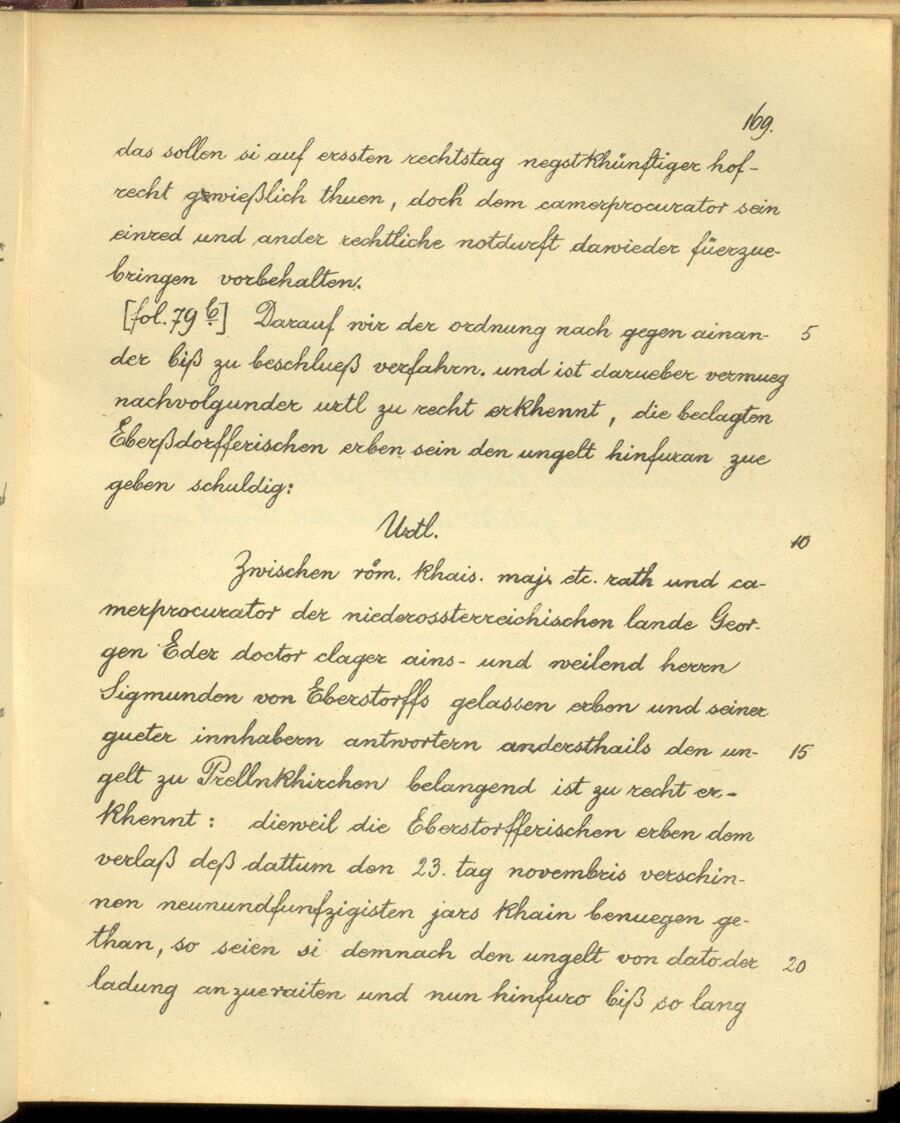 169.
das sollen si auf erssten rechtstag negstkhünftiger hof-
recht gewießlich thuen, doch dem camerprocurator sein
einred und ander rechtliche notdurft dawieder füerzue-
bringen vorbehalten.
[fol. 79 b] Darauf wir der ordnung nach gegen ainan- 5
der biß zu beschlueß verfahrn. und ist darueber vermueg
nachvolgunder urtl zu recht erkhennt, die beclagten
Eberßdorfferischen erben sein den ungelt hinfuran zue
geben schuldig:
Urtl. 10
Zwischen röm. khais. maj. etc. rath und ca-
merprocurator der niederossterreichischen lande Geor-
gen Eder doctor clager ains- und weilend herrn
Sigmunden von Eberstorffs gelassen erben und seiner
gueter innhabern antwortern andersthails den un- 15
gelt zu Prellnkhirchen belangend ist zu recht er-
khennt: dieweil die Eberstorfferischen erben dem
verlaß deß dattum den 23. tag novembris verschin-
nen neunundfunfzigisten jars khain benuegen ge-
than, so seien si demnach den ungelt von dato der 20
ladung anzueraiten und nun hinfuro biß so lang